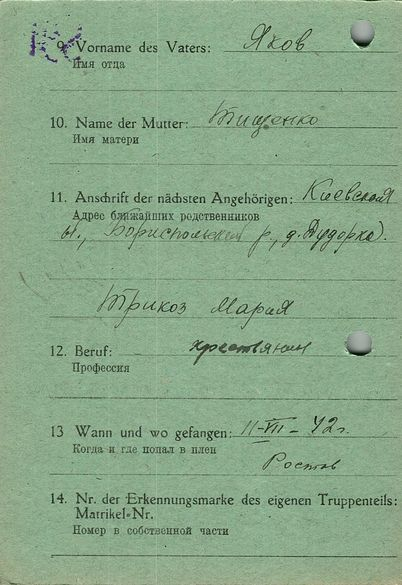 9. Vorname des Vaters: Яков
Имя отца
10. Name der Mutter: Тищенко
Имя матери
11. Anschrift der nächsten Angehörigen: Киевская
Адрес ближайших родственников
Бориспольский р, д. Дударко).
Трикоз Мария
12. Beruf: хрестьянин
Профессия
13 Wann und wo gefangen: 11-VII-42г.
Когда и где попал в плен
Ростов
14. Nr. der Erkennungsmarke des eigenen Truppenteils:
Matrikel-Nr.
Номер в собственной части